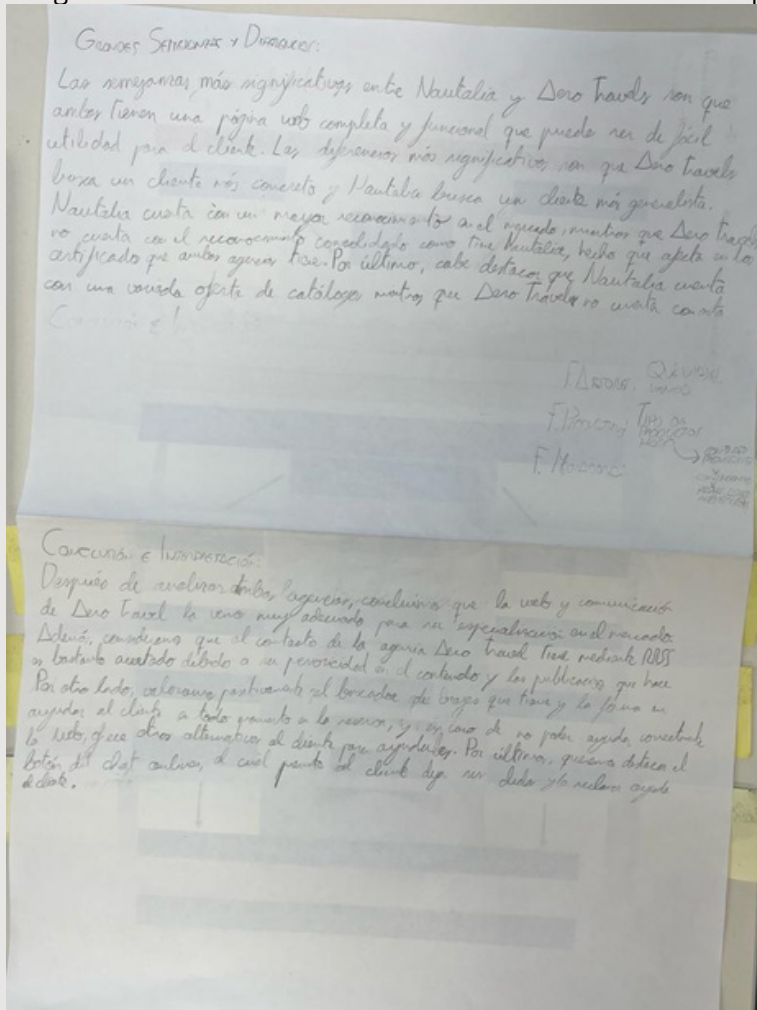 Grandes Semejanzas y Diferencias:
Las semejanzas más significativas entre Nautalia y Dero Travels son que
ambas tienen una página web completa y funcional que puede ser de fácil
utilidad para el cliente. Las diferencias más significativas son que Dero Travels
busca un cliente más concreto y Nautalia busca un cliente más generalista.
Nautalia cuenta con un mayor reconocimiento en el mercado, mientras que Dero Travels
no cuenta con el reconocimiento consolidado como tiene Nautalia, hecho que afecta en los
certificado que ambas agencias tiene. Por último, cabe destacar que Nautalia cuenta
con una variada oferta de catálogos mientras que Dero Travels no cuenta con esta
Tipo de
Conclusión e Interpretación:
Después de analizar ambas agencias, concluimos que la web y comunicación
de Dero Travel la vemos muy adecuada para su especialización en el mercado.
Además, consideramos que el contacto de la agencia Dero Travel tiene mediante RRSS
es bastante acertado debido a su periosidad en el contenido y las publicaciones que hace
Por otro lado, valoramos positivamente el buscador de viajes que tiene y la forma en
ayudar al cliente a todo momento en la reserva, y en caso de no poder ayuda
la web, ofrece otras alternativas al cliente para ayudarles. Por último, queremos destacar el
botón del chat online, el cual permite al cliente deje sus dudas y/o reclamo ayuda
al cliente.